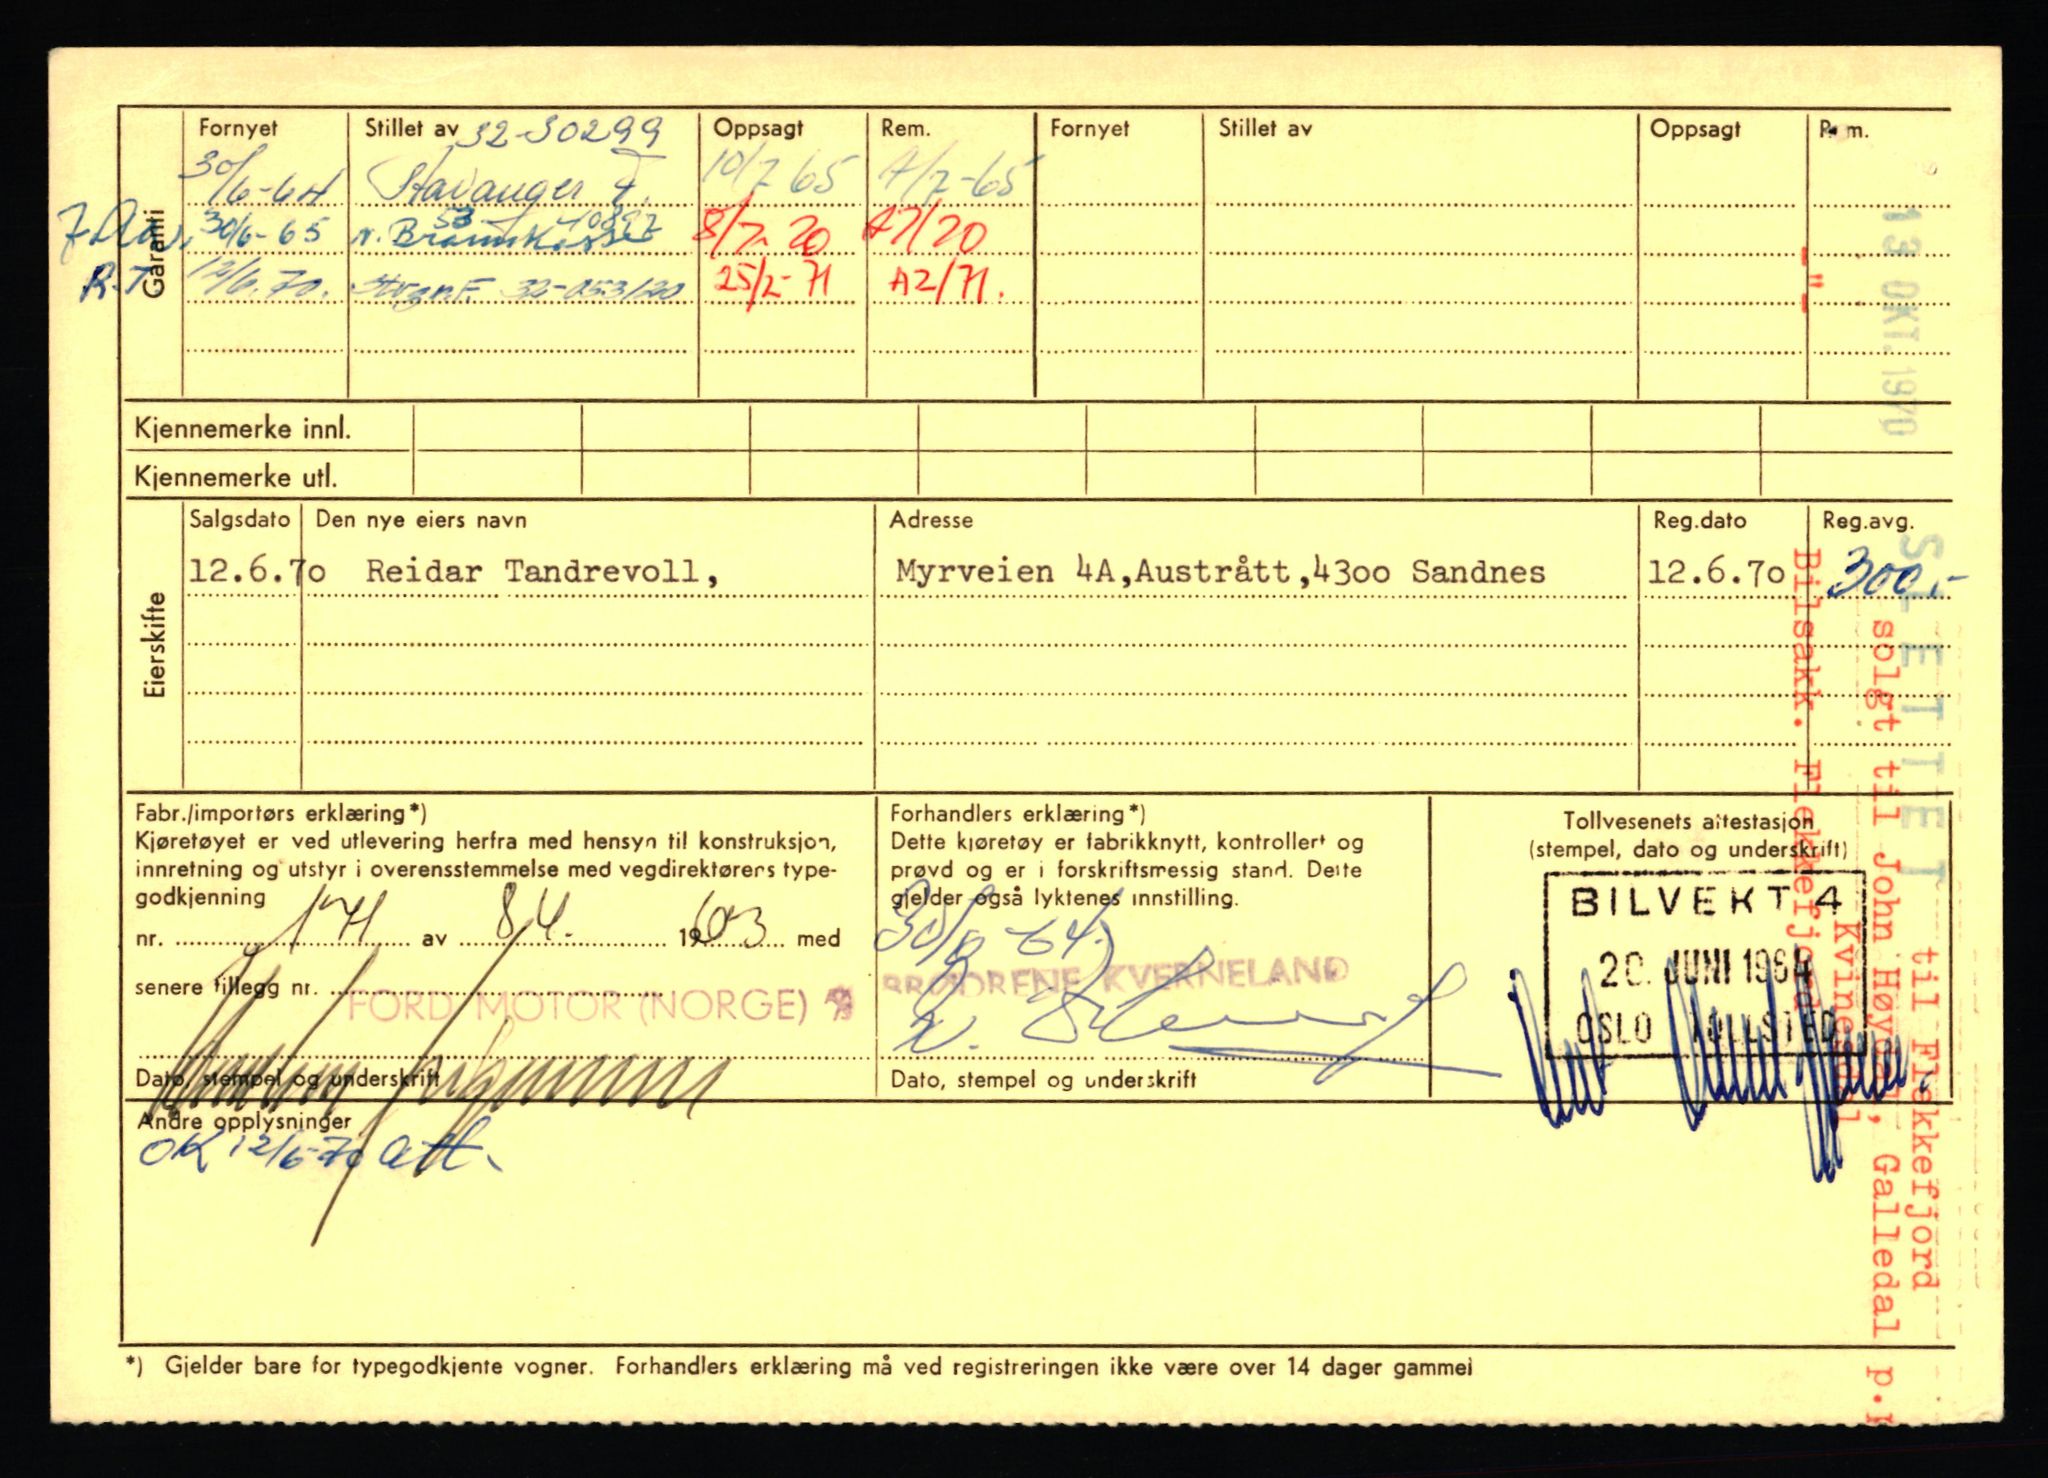 Fornyet Stillet av 32-30299 Oppsagt Rem. Fornyet Stillet av Oppsagt Rem.
30/6-64 Stavanger F. 10/7 65 A/7-65
30/6-65 N. Brannkasse 53-10897 8/7-70 A7/70
12/6.70. Stvgr.F. 32-053120 25/2-71 A2/71.
R.T.
Garanti
Kjennemerke innl.
Kjennemerke utl.
Eierskifte
Salgsdato Den nye eiers navn Adresse Reg.dato Reg.avg.
12.6.70 Reidar Tandrevoll, Myrveien 4A,Austrått,4300 Sandnes 12.6.70 300.-
Fabr./importørs erklæring*)
Kjøretøyet er ved utlevering herfra med hensyn til konstruksjon,
innretning og utstyr i overensstemmelse med vegdirektørens type-
godkjenning
nr. 171 av 8/4. 1963 med
senere tillegg nr.
FORD MOTOR (NORGE) A/S
Dato, stempel og underskrift
Forhandlers erklæring*)
Dette kjøretøy er fabrikknytt, kontrollert og
prøvd og er i forskriftsmessig stand. Dette
gjelder også lyktenes innstilling.
30/6-64
BRØDRENE KVERNELAND
Dato, stempel og underskrift
Tollvesenets attestasjon
(stempel, dato og underskrift)
BILVEKT 4
20. JUNI 1964
OSLO TOLLSTED
Andre opplysninger
OK 12/6-70
*) Gjelder bare for typegodkjente vogner. Forhandlers erklæring må ved registreringen ikke være over 14 dager gammel
13 OKT. 1970
SLETTET
til Flekkefjord
solgt til John Høydal, Galledal p.
Kvinesdal
Bilsakk. Flekkefjord
-"-